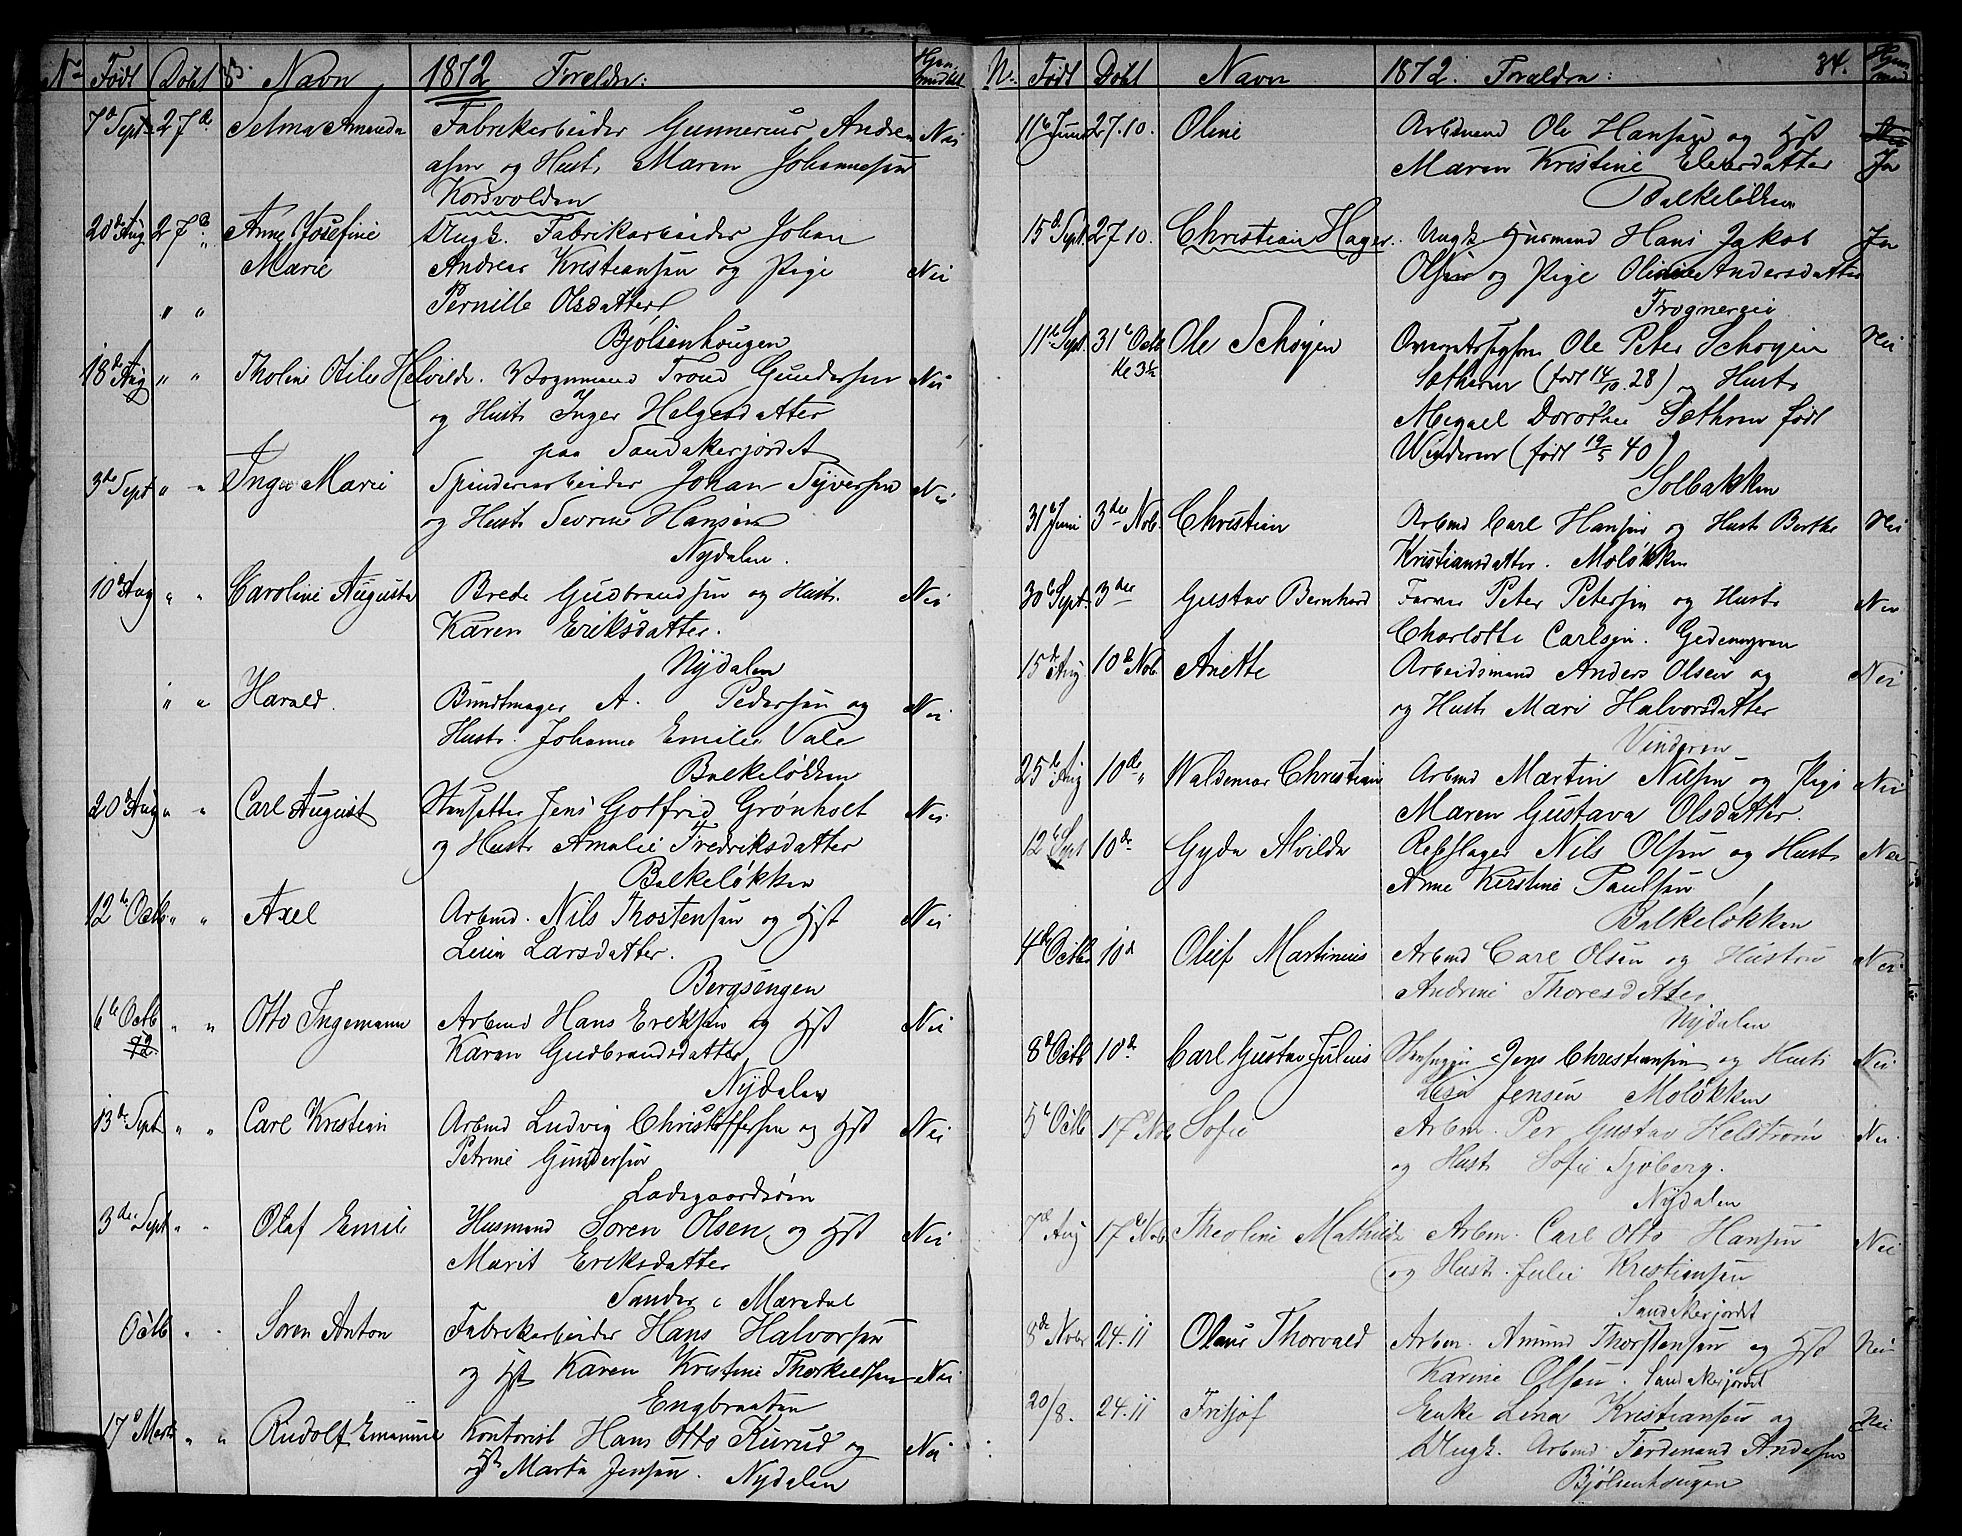 No Født Döbt Navn 1872 Forældre:
7de Septr 27de Selma Amanda Fabrikarbeider Gunnerius Andre- Nei
asen og Hust. Maren Johannesen
Nordvolden
20de Aug 27de Anne Josefine Ungk. Fabrikarbeider Johan
Marie Andreas Kristiansen og Pige Nei
" " Pernille Olsdatter
Bjølsenhougen
18de Aug " " Tholine Otilie Helvilde. Vognmand Trond Gundersen Nei
og Hust. Inger Helgesdatter
paa Sandakerjordet
3de Sept " " Inga Marie Spinderiarbeider Johan Syversen Nei
og Hust. Sevrine Hansen
Nydalen.
10de Aug " " Caroline Augusta Brede Gudbrandsen og Hust. Nei
Karen Eriksdatter.
Nydalen
" " Harald. Bundtmager A. Pedersen og Nei
Hust. Johanne Emilie Vale
Balkeløkken
20de Aug " " Carl August Stensætter Jens Gotfrid Grønholt Nei
og Hust. Amalie Fredriksdatter
Balkeløkken
12te Octb " " Axel Arbmd. Nils Thostensen og Hst Nei
Larsdatter.
Bergsengen
6te Octb " " Otto Ingemann Arbmd Hans Eriksen og Hst Nei
Karen Gudbrandsdatter
Nydalen
13de Sept " " Carl Kristian Arbmd Ludvig Christoffersen og Hst Nei
Petrine Gundersen
Ladegaardsøen
3de Sept " " Olaf Emil Husmand Soren Olsen og Hst Nei
Marit Eriksdatter
Sander i Maredal
Octb " " Soren Anton Fabrikarbeider Hans Halvorsen
og Hst Karen Kristine Thorkildsen Nei
Engbraaten
17de Marts " " Rudolf Emanuel Kontorist Hans Otto Kurud og Nei
Marta Jensen. Nydalen
No. Født Döbt Navn 1872. Forældre: 34.
11te Juni 27.10. Oline Arbmand Ole Hansen og Hst Nei
Maren Kristine Eleversdatter Ja
Balkeløkken
15de Sept 27.10. Christian Hager. Ungk Husmand Hans Jakob Ja
Olsen og Pige Oline Andersdatter
Frognereie
11te Sept. 31te Octb Ole Schøyen Ole Peter Schøyen Nei
Kl 3½ Sæthern (født 14/10. 28) og Hust.
Dorothea Sæthren født
Winderen (født 19/5 40)
Solbakken
31te Juni 3die Nob Christian Arbmd Carl Hansen og Hust Berthe Nei
Kristiansdatter. Moløkken
30te Sept. 3die Gustav Bernhard Farver Peter Petersen og Hust. Nei
Charlotte Carlsen. Gedemyren
15de Aug. 10de Nob Anette Arbeidsmand Anders Olsen og Nei
og Hust. Mari Halvorsdatter
Vinderen
25de Aug 10de " Waldemar Christian Arbmd Martin Nilsen og Pige Nei
Maren Gustava Olsdatter.
12te Sept 10de Gyda Alvilda Repslager Nils Olsen og Hust. Nei
Anne Kerstine Paulsen
Balkeløkken
4de Octbr 10de Oluf Martinius Arbmd Carl Olsen og Hustru Nei
Andrine Thoresdatter
Nydalen
8de Octb 10de Carl Gustav Julius Jens Christiansen og Hust. Nei
Jensen Moløkken
5te Octb 17de Nob Sofie Arbm. Per Gustav Helstrøm Nei
og Hust. Sofie Sjöberg.
Nydalen
7de Aug 17de Nob. Theoline Mathilde Arbm. Carl Otto Hansen Nei
og Hust. Julie Kristiansen
Sandakerjordet
8de Nobr 24.11 Olaus Thorvald Arbm. Amund Thorstensen og Hst Nei
Karine Olsen. Sandakerjordet
20/8. 24.11 Fritjof Enke Lina Kristiansen og Nei
Ungk. Arbmd Ferdinand Andersen
Bjølsenhougen